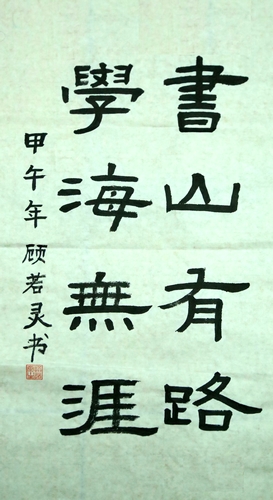 書山有路
學海無涯
甲午年顾若灵书